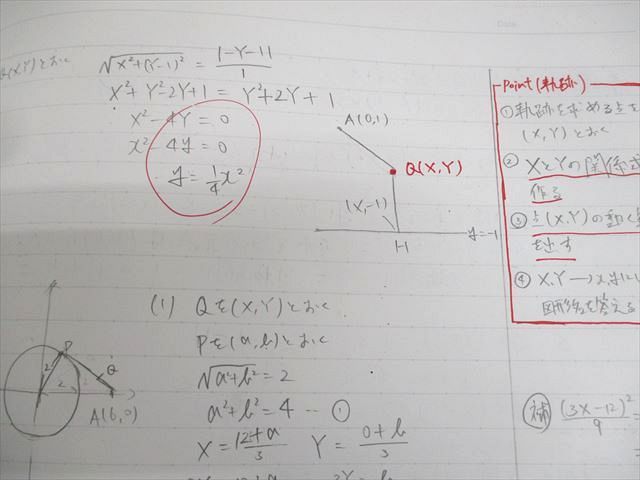 Q(X,Y)とおく
√X²+(Y-1)² = |-Y-1|/1
X²+Y²-2Y+1 = Y²+2Y+1
X²-4Y=0
x²-4y=0
y=1/4x²
A(0,1)
Q(X,Y)
(X,-1)
H
y=-1
Point(軌跡)
①軌跡を求める点を
(X,Y)とおく
②XとYの関係式
作る
③点(X,Y)の動く
を出す
④X,Y→x,yに
図形名を答える
(1) Qを(X,Y)とおく
Pを(a,b)とおく
√a²+b²=2
a²+b²=4 … ①
X=12+a/3 Y=0+b/3
P
Q
2
2
A(6,0)
補 (3X-12)²/9